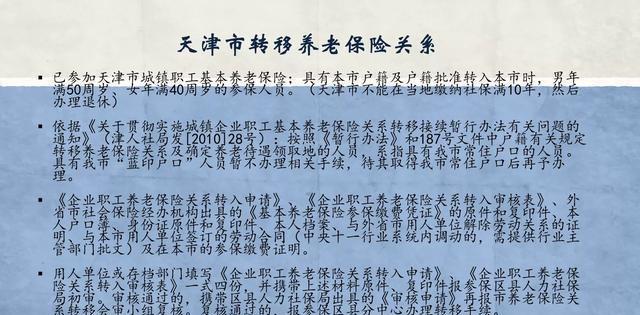 天津市转移养老保险关系
▪ 已参加天津市城镇职工基本养老保险；具有本市户籍及户籍批准转入本市时，男年
满50周岁，女年满40周岁的参保人员。（天津市不能在当地缴纳社保满10年，然后
办理退休）
▪ 依据《关于贯彻实施城镇企业职工基本养老保险关系转移接续暂行办法有关问题的
通知》（津人社局发[2010]28号）：按照《暂行办法》和187号文件中户籍有关规定
转移养老保险关系及确定养老待遇领取地的人员，系指具有我市常住户口的人员。
具有我市“蓝印户口”人员暂不办理相关手续，待真取得我市常住户口后再予办
理。
▪ 《企业职工养老保险关系转入申请》、《企业职工养老保险关系转入审核表》、外
省市社会保险经办机构出具的《基本养老保险参保缴费凭证》的原件和复印件、本
人户口簿、身份证原件和复印件、本人档案、与外省市用人单位解除劳动关系的证
明、与本市用人单位签订的劳动合同（中央十一行业系统内调动的，需提供行业主
管部门批文）及在本市的参保缴费证明。
▪ 用人单位或存档部门填写《企业职工养老保险关系转入申请》、《企业职工养老保
险关系转入审核表》一式四份，并携带上述材料原件、复印件报参保区县人力社保
局初审。审核通过的，携带区县人力社保局出具的《审核申请》再报市养老保险关
系转移会审小组复核。复核通过的，报参保区县分中心办理转移手续。